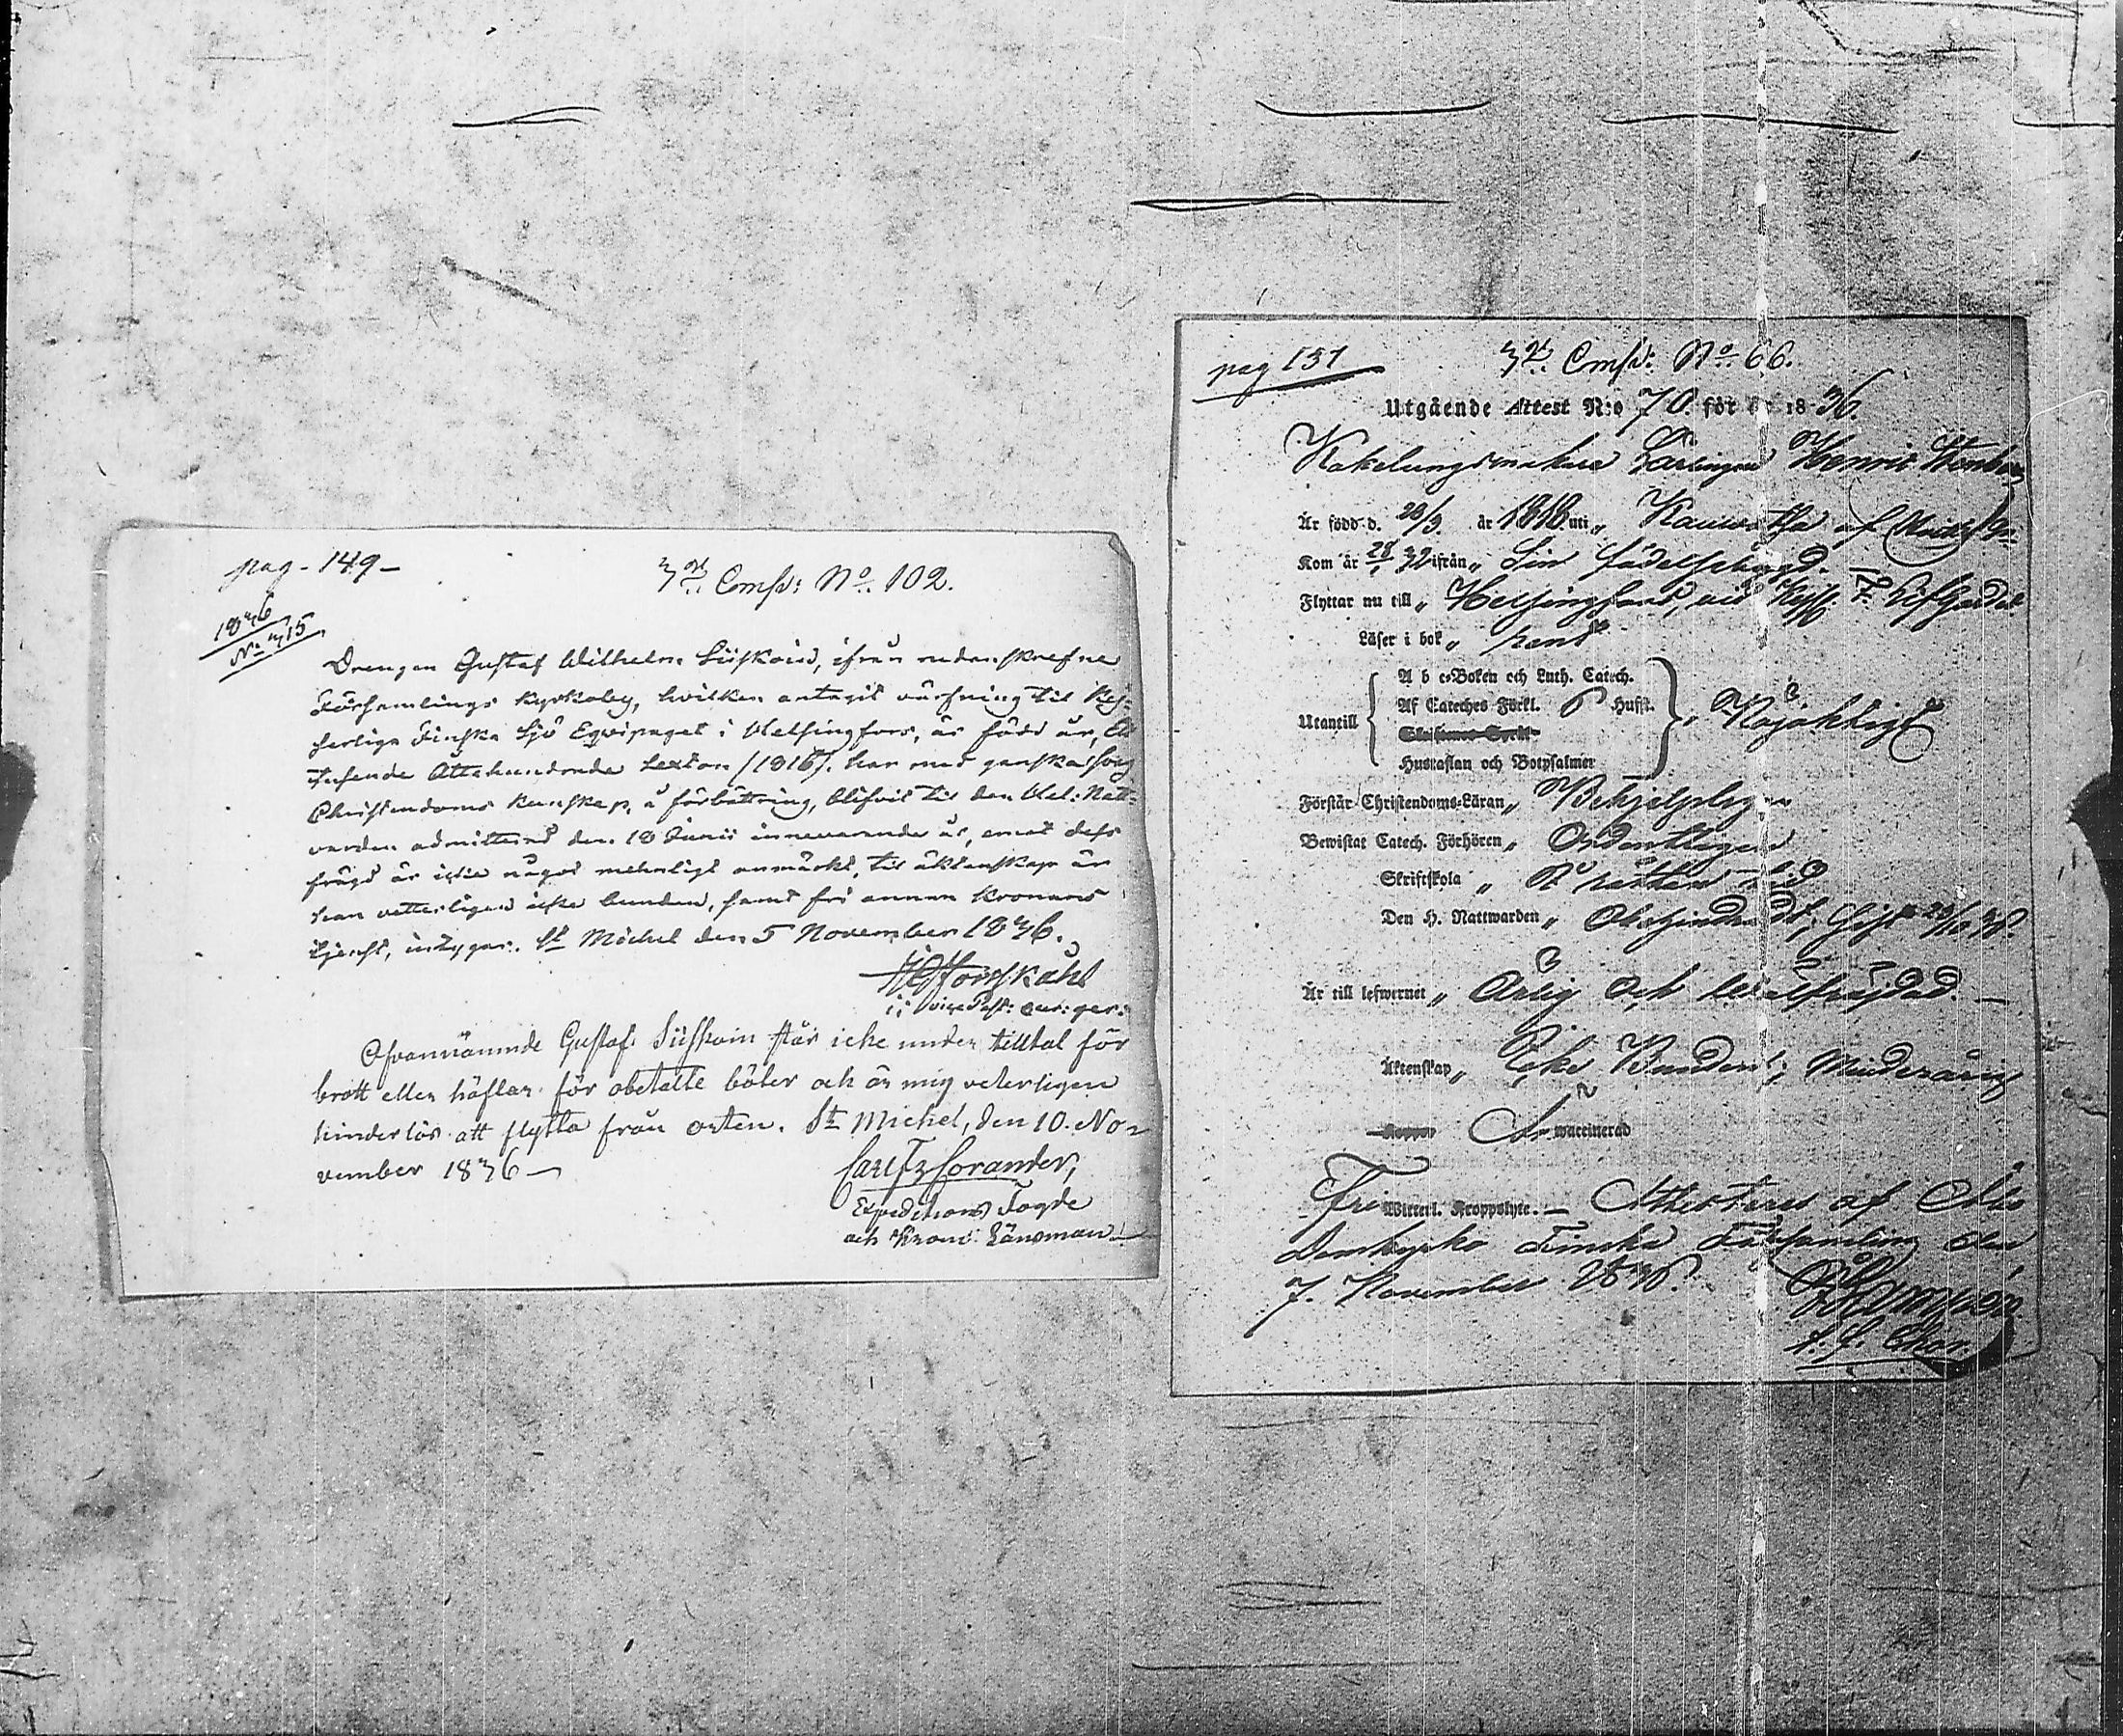 pag - 149 -
3de Comp: No 102.
1836
No 415
Drengen Gustaf Wilhelm Siiskoin, ifrån nedanskrefne
Församlings Kyrkoby, hvilken antagit värfning til Kej-
serliga Finska Sjö Equipaget i Helsingfors, är född år, Et
tusende Åttahundrade Sexton /1816/. har med ganska svag
Christendoms kunskap, å förbättring, blifvit til den Hel: Natt-
varden admitterad den 18 Junii innevarande år, emot dess
frägd är icke något menligt anmärkt, til äktenskap är
han vetterligen icke bunden, samt fri annan Kronans
tjenst, intygar. St Michel den 5 November 1836.
Forsskåhl
vice Past: cur: ger:
Ofvannämnde Gustaf Siiskoin står icke under tilltal för
brott eller häftar för obetalte böter och är mig veterligen
hinderlös att flytta från orten. St Michel, den 10. No-
vember 1836 —
Carl Fz Corander,
Expeditions Fogde
och Krono Länsman
pag 151
3de Comp: No 66.
Utgående Attest N:o 70. för år 1836.
Kakelungsmakare Lärlingen Henric
Är född d. 28/3. år 1818. uti „ Kauvatsa af
Kom år 32 ifrån „ Sin födelsebygd.
Flyttar nu till „ Helsingfors, vid Kejs.
Läser i bok „ rent
A b c-Boken och Luth. Catech.
Af Cateches Förkl. Husfl.
Utantill „ Nöjaktigt
Hustaflan och Botpsalmer
Förstår Christendoms-Läran „ Behjelpligen
Bewistat Catech. Förhören „ Ordentligen
Skriftskola „ Å rättan tid
Den H. Nattwarden „ Obehindradt,
Är till lefwernet „ Ärlig och välfräjdad. —
Äktenskap „ Icke Bunden; Minderårig
Är waccinerad
Fri Witterl. Kroppslyte. — Attesteras af Åbo
Domkyrko Finska Församling den
7. November 1836.